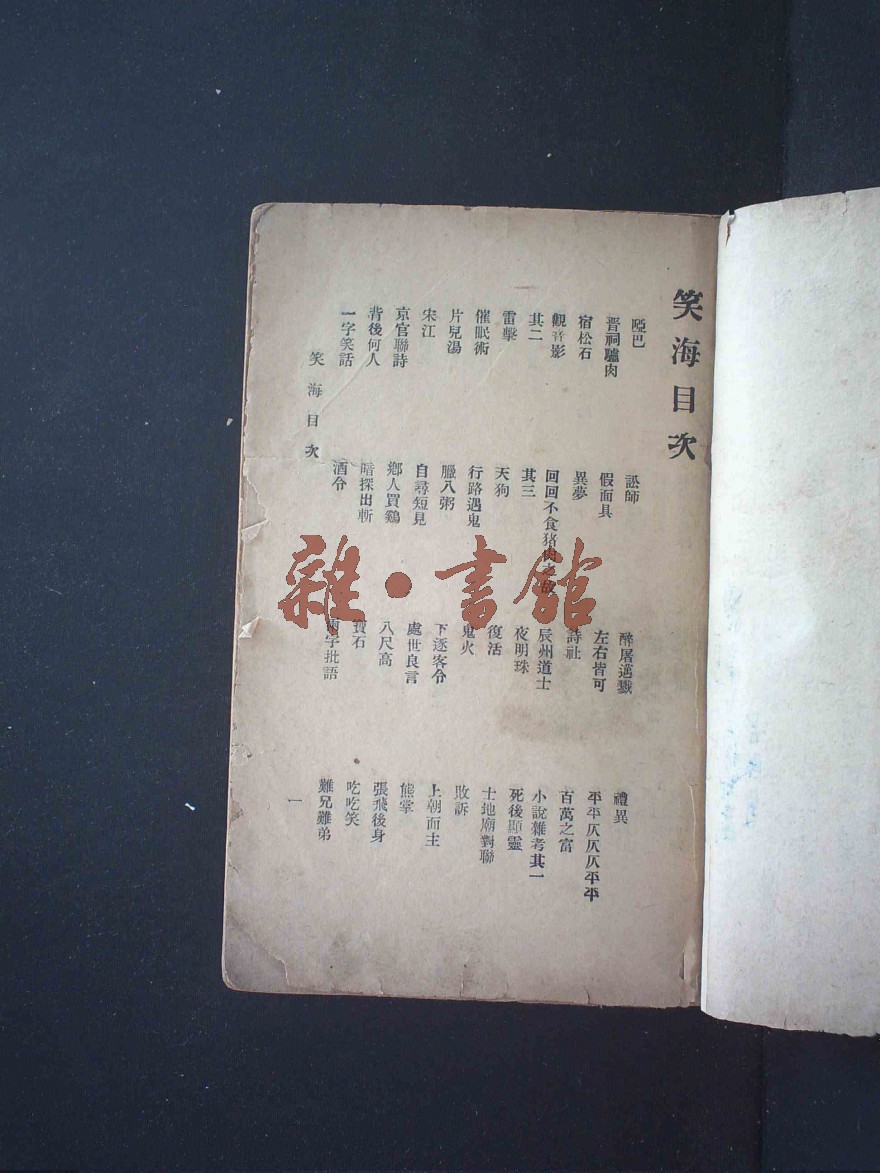 笑海目次
啞巴 訟師 醉屠 禮異
晋祠驢肉 假面具 左右皆可 平平仄仄仄平平
宿松石 異夢 詩社 百萬之富
觀音影 回回不食猪肉之故 辰州道士 小說雜考其一
其二 其三 夜明珠 死後顯靈
雷擊 天狗 復活 土地廟對聯
催眠術 行路遇鬼 鬼火 敗訴
片兒湯 臘八粥 下逐客令 上朝而主
宋江 自尋短見 處世良言 熊掌
京官聯詩 鄉人買鷄 八尺高 張飛後身
背後何人 暗探出斬 寶石 吃吃笑
一字笑話 酒令 兩字批語 難兄難弟
笑海目次 一
雜·書舘